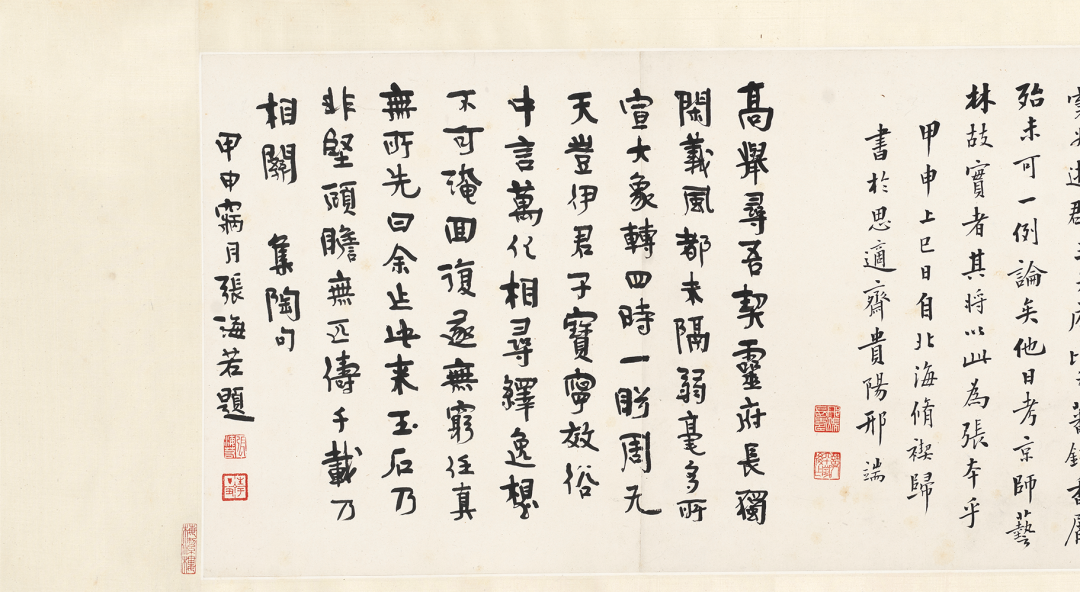 殆未可一例論矣他日考京師藝
林故實者其將以此為張本乎
甲申上巳日自北海脩禊歸
書於思適齋貴陽邢端
高舉尋吾契靈府長獨
閑羲風都未隔弱毫多所
宣大象轉四時一盻周九
天豈伊君子寶寧效俗
中言萬化相尋繹逸想
不可淹回復遂無窮任真
無所先曰余止此来玉石乃
非堅頋瞻無匹儔千載乃
相關 集陶句
甲申寎月張海若題